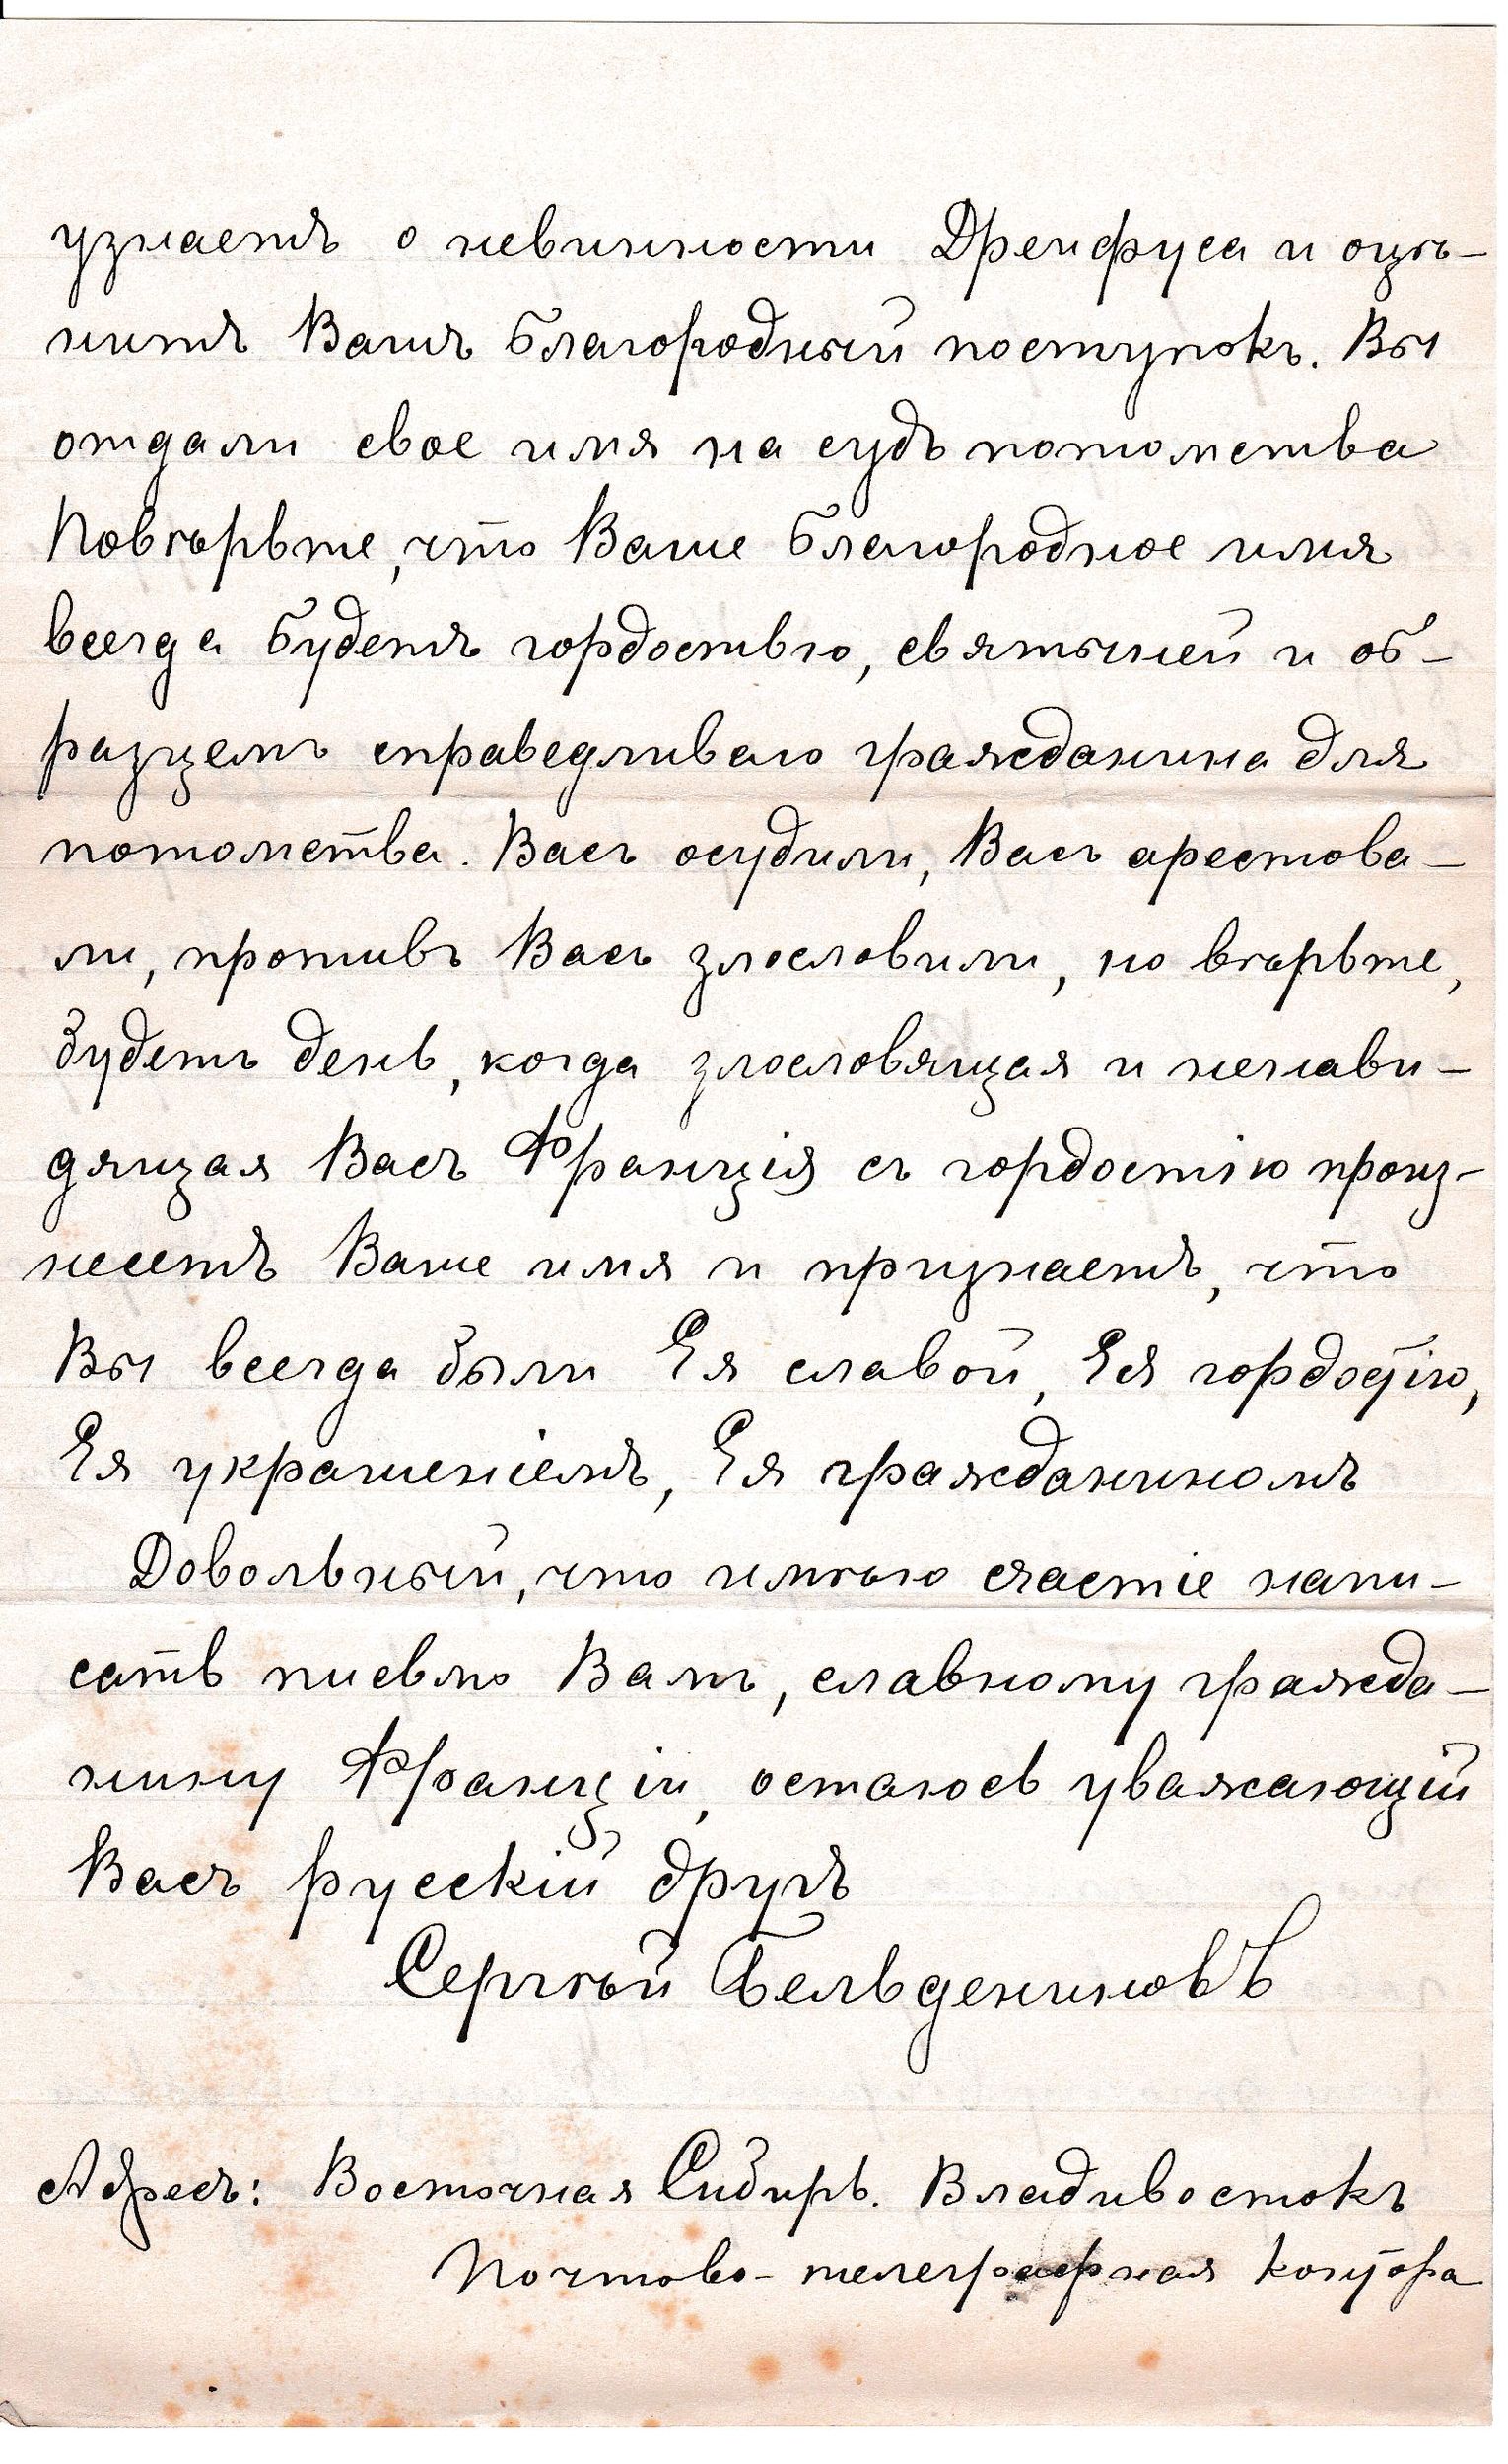 узнаетъ о невинности Дреифуса и оцѣ-
нитъ Вашъ благородный поступокъ. Вы
отдали свое имя на судъ потомства
Повѣрьте, что Ваше благородное имя
всегда будетъ гордостью, святыней и об-
разцемъ справедливаго гражданина для
потомства. Васъ осудили, Васъ арестова-
ли, противъ Васъ злословили, но вѣрьте,
будетъ день, когда злословящая и ненави-
дящая Васъ Франція съ гордостію произ-
несетъ Ваше имя и признаетъ, что
Вы всегда были Ея славой, Ея гордостію,
Ея украшеніемъ, Ея гражданиномъ
Довольный, что имѣю счастіе напи-
сать письмо Вамъ, славному гражда-
нину Франціи, остаюсь уважающій
Васъ русскій другъ
Сергѣй Бельдениновъ
Адресъ: Восточная Сибирь. Владивостокъ
Почтово-телеграфная контора